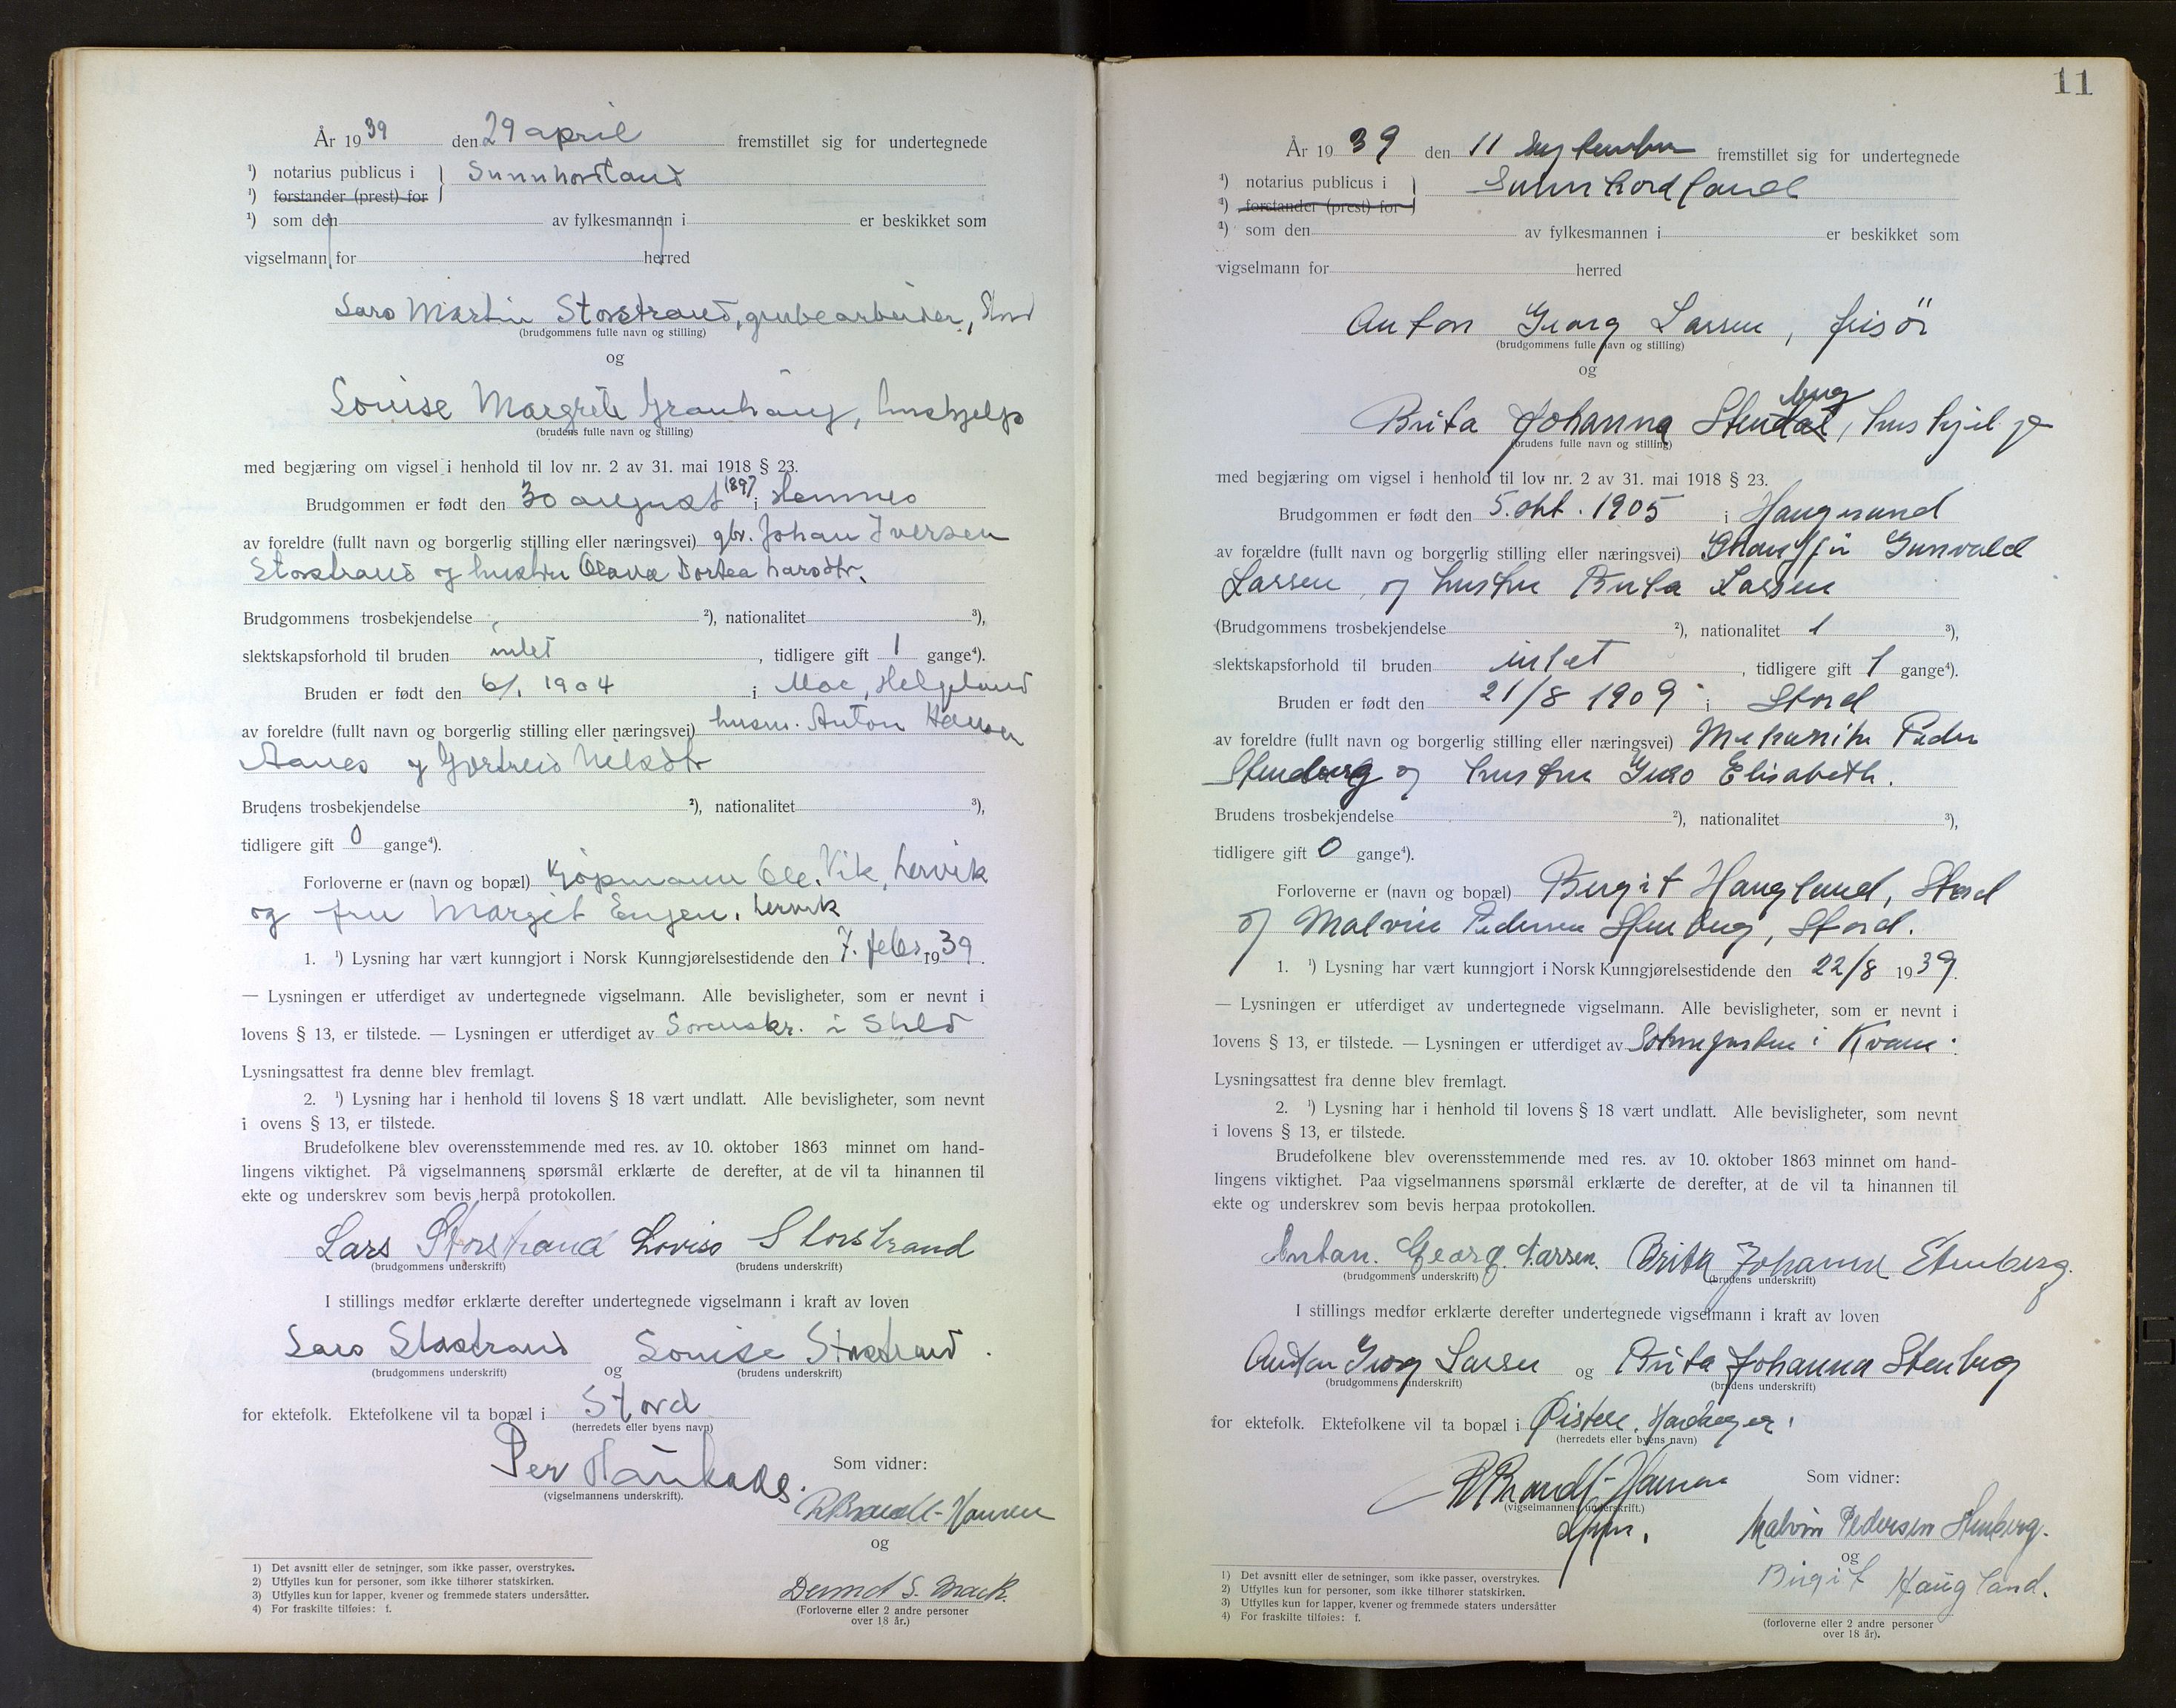 År 1939 den 29 april fremstillet sig for undertegnede
¹) notarius publicus i } Sunnhordland
¹) forstander (prest) for
¹) som den av fylkesmannen i er beskikket som
vigselmann for herred
Lars Martin Storstrand, grubearbeider, Stord
(brudgommens fulle navn og stilling)
og
Louise Margrete Granhaug, hushjelp
(brudens fulle navn og stilling)
med begjæring om vigsel i henhold til lov nr. 2 av 31. mai 1918 § 23.
Brudgommen er født den 30 august 1897 i Hemnes
av foreldre (fullt navn og borgerlig stilling eller næringsvei) gbr. Johan Iversen
Storstrand og hustru Olava Dortea Larsdtr.
Brudgommens trosbekjendelse ²), nationalitet ³),
slektskapsforhold til bruden intet, tidligere gift 1 gange⁴).
Bruden er født den 6/1 1904 i Moe, Helgeland
av foreldre (fullt navn og borgerlig stilling eller næringsvei) husm. Anton Hansen
Aanes og Gjertreid Nilsdtr
Brudens trosbekjendelse ²), nationalitet ³),
tidligere gift 0 gange⁴).
Forloverne er (navn og bopæl) Kjøpmann Ole Vik, Lervik
og fru Margit Engen, Lervik
1. ¹) Lysning har vært kunngjort i Norsk Kunngjørelsestidende den 7. febr. 1939.
— Lysningen er utferdiget av undertegnede vigselmann. Alle bevisligheter, som er nevnt i
lovens § 13, er tilstede. — Lysningen er utferdiget av Sorenskr. i
Lysningsattest fra denne blev fremlagt.
2. ¹) Lysning har i henhold til lovens § 18 vært undlatt. Alle bevisligheter, som nevnt
i ovens § 13, er tilstede.
Brudefolkene blev overensstemmende med res. av 10. oktober 1863 minnet om hand-
lingens viktighet. På vigselmannens spørsmål erklærte de derefter, at de vil ta hinannen til
ekte og underskrev som bevis herpå protokollen.
Lars Storstrand Lovise Storstrand
(brudgommens underskrift) (brudens underskrift)
I stillings medfør erklærte derefter undertegnede vigselmann i kraft av loven
Lars Storstrand og Louise Storstrand.
(brudgommens underskrift) (brudens underskrift)
for ektefolk. Ektefolkene vil ta bopæl i Stord
(herredets eller byens navn)
Per Haukaas.
(vigselmannens underskrift).
Som vidner:
R Brandt-Hansen
og
S. Mack.
(Forloverne eller 2 andre personer
over 18 år.)
1) Det avsnitt eller de setninger, som ikke passer, overstrykes.
2) Utfylles kun for personer, som ikke tilhører statskirken.
3) Utfylles kun for lapper, kvener og fremmede staters undersåtter.
4) For fraskilte tilføies: f.
11
År 1939 den 11 september fremstillet sig for undertegnede
¹) notarius publicus i } Sunnhordland
¹) forstander (prest) for
¹) som den av fylkesmannen i er beskikket som
vigselmann for herred
Anton Georg Larsen, frisör
(brudgommens fulle navn og stilling)
og
berg
Brita Johanna Stendal, hushjelp
(brudens fulle navn og stilling)
med begjæring om vigsel i henhold til lov nr. 2 av 31. mai 1918 § 23.
Brudgommen er født den 5. okt. 1905 i Haugesund
av forældre (fullt navn og borgerlig stilling eller næringsvei) Gunvald
Larsen og hustru Brita Larsen
(Brudgommens trosbekjendelse ²), nationalitet 1 ³),
slektskapsforhold til bruden intet, tidligere gift 1 gange⁴).
Bruden er født den 21/8 1909 i Stord
av foreldre (fullt navn og borgerlig stilling eller næringsvei) Mekaniker Peder
Stenberg og hustru Guro Elisabeth.
Brudens trosbekjendelse ²), nationalitet ³),
tidligere gift 0 gange⁴).
Forloverne er (navn og bopæl) Birgit Haugland, Stord
og Malvin Pedersen Stenberg, Stord.
1. ¹) Lysning har vært kunngjort i Norsk Kunngjørelsestidende den 22/8 1939.
— Lysningen er utferdiget av undertegnede vigselmann. Alle bevisligheter, som er nevnt i
lovens § 13, er tilstede. — Lysningen er utferdiget av Sokneprsten i Kvam.
Lysningsattest fra denne blev fremlagt.
2. ¹) Lysning har i henhold til lovens § 18 vært undlatt. Alle bevisligheter, som nevnt
i lovens § 13, er tilstede.
Brudefolkene blev overensstemmende med res. av 10. oktober 1863 minnet om hand-
lingens viktighet. Paa vigselmannens spørsmål erklærte de derefter, at de vil ta hinannen til
ekte og underskrev som bevis herpaa protokollen.
Anton. Georg. Larsen. Brita Johanne Stenberg.
(brudgommens underskrift) (brudens underskrift)
I stillings medfør erklærte derefter undertegnede vigselmann i kraft av loven
Anton Georg Larsen og Brita Johanna Stenberg
(brudgommens underskrift) (brudens underskrift)
for ektefolk. Ektefolkene vil ta bopæl i Øistese, Hardanger.
(herredets eller byens navn)
R Brandt-Hansen
(vigselmannens underskrift.)
Som vidner:
Malvin Pedersen Stenberg.
og
Birgit Haugland.
(forloverne eller 2 andre personer
over 18 år).
1) Det avsnitt eller de setninger, som ikke passer, overstrykes.
2) Utfylles kun for personer, som ikke tilhører statskirken.
3) Utfylles kun for lapper, kvener og fremmede staters undersåtter
4) For fraskilte tilføies: f.